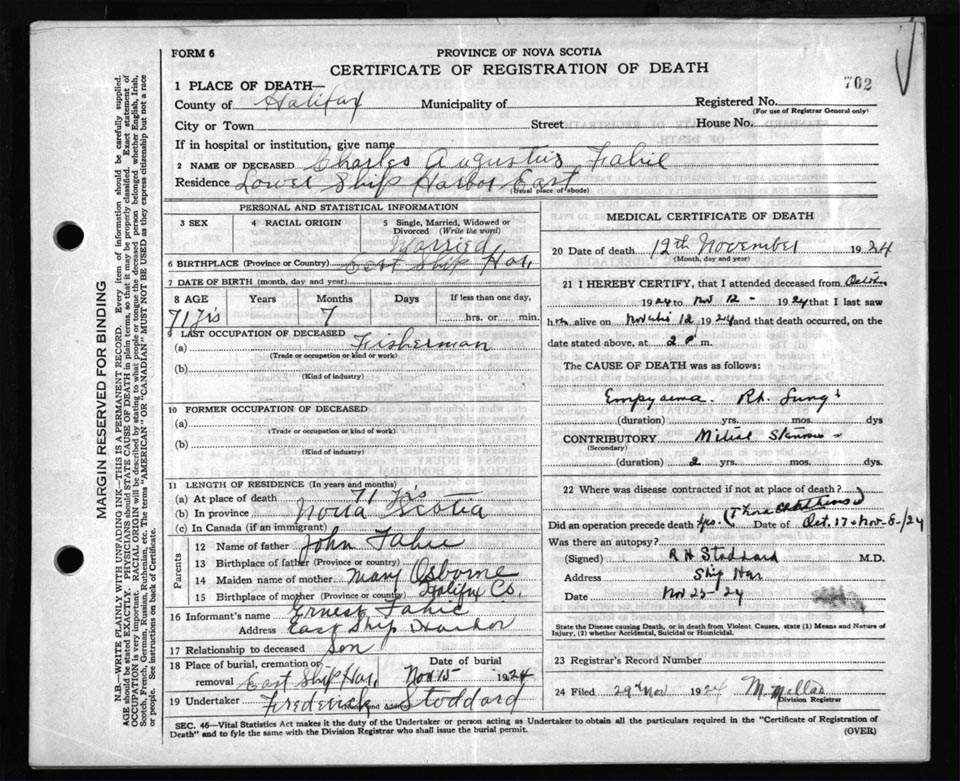 FORM 6
PROVINCE OF NOVA SCOTIA
CERTIFICATE OF REGISTRATION OF DEATH
702
1 PLACE OF DEATH—
County of Halifax Municipality of Registered No.
(For use of Registrar General only)
City or Town Street House No.
If in hospital or institution, give name
2 NAME OF DECEASED Charles Augustus Fahie
Residence Lower Ship Harbor East
(Usual place of abode)
PERSONAL AND STATISTICAL INFORMATION
3 SEX 4 RACIAL ORIGIN 5 Single, Married, Widowed or Divorced (Write the word)
Married
6 BIRTHPLACE (Province or Country) East Ship Har.
7 DATE OF BIRTH (month, day and year)
8 AGE Years Months Days If less than one day,
71 Yrs 7 hrs. or min.
9 LAST OCCUPATION OF DECEASED
(a) Fisherman
(Trade or occupation or kind of work)
(b)
(Kind of industry)
10 FORMER OCCUPATION OF DECEASED
(a)
(Trade or occupation or kind of work)
(b)
(Kind of industry)
11 LENGTH OF RESIDENCE (In years and months)
(a) At place of death 71 Yrs
(b) In province Nova Scotia
(c) In Canada (if an immigrant)
Parents
12 Name of father John Fahie
13 Birthplace of father (Province or country)
14 Maiden name of mother Mary Osborne
15 Birthplace of mother (Province or country) Halifax Co.
16 Informant's name Ernest Fahie
Address East Ship Harbor
17 Relationship to deceased Son
18 Place of burial, cremation or removal East Ship Har. Date of burial Nov 15 1924
19 Undertaker Frederick Stoddard
MEDICAL CERTIFICATE OF DEATH
20 Date of death 12th November 1924
(Month, day and year)
21 I HEREBY CERTIFY, that I attended deceased from
1924 to Nov 12 - 1924 that I last saw
him alive on 12 1924 and that death occurred, on the
date stated above, at 2 P m.
The CAUSE OF DEATH was as follows:
Empyaema. Rt. Lung
(duration) yrs. mos. dys
CONTRIBUTORY Mitral Stenosis
(Secondary)
(duration) 2 yrs. mos. dys.
22 Where was disease contracted if not at place of death?
Did an operation precede death? Yes. Date of Oct. 17 & Nov - 8 -/24
Was there an autopsy?
(Signed) R H Stoddard M.D.
Address Ship Har
Date Nov 25 - 24
State the Disease causing Death, or in death from Violent Causes, state (1) Means and Nature of
Injury, (2) whether Accidental, Suicidal or Homicidal.
23 Registrar's Record Number
24 Filed 29th Nov 1924
Division Registrar
SEC. 46—Vital Statistics Act makes it the duty of the Undertaker or person acting as Undertaker to obtain all the particulars required in the "Certificate of Registration of
Death" and to fyle the same with the Division Registrar who shall issue the burial permit.
(OVER)
MARGIN RESERVED FOR BINDING
N.B.—WRITE PLAINLY WITH UNFADING INK—THIS IS A PERMANENT RECORD. Every item of information should be carefully supplied.
AGE should be stated EXACTLY. PHYSICIANS should STATE CAUSE OF DEATH in plain terms, so that it may be properly classified. Exact statement of
OCCUPATION is very important. RACIAL ORIGIN will be described by stating to what people or tongue the deceased person belonged whether English, Irish,
Scotch, French, German, Russian, Ruthenian, etc. The terms "AMERICAN" OR "CANADIAN" MUST NOT BE USED as they express citizenship but not a race
or people. See instructions on back of Certificate.